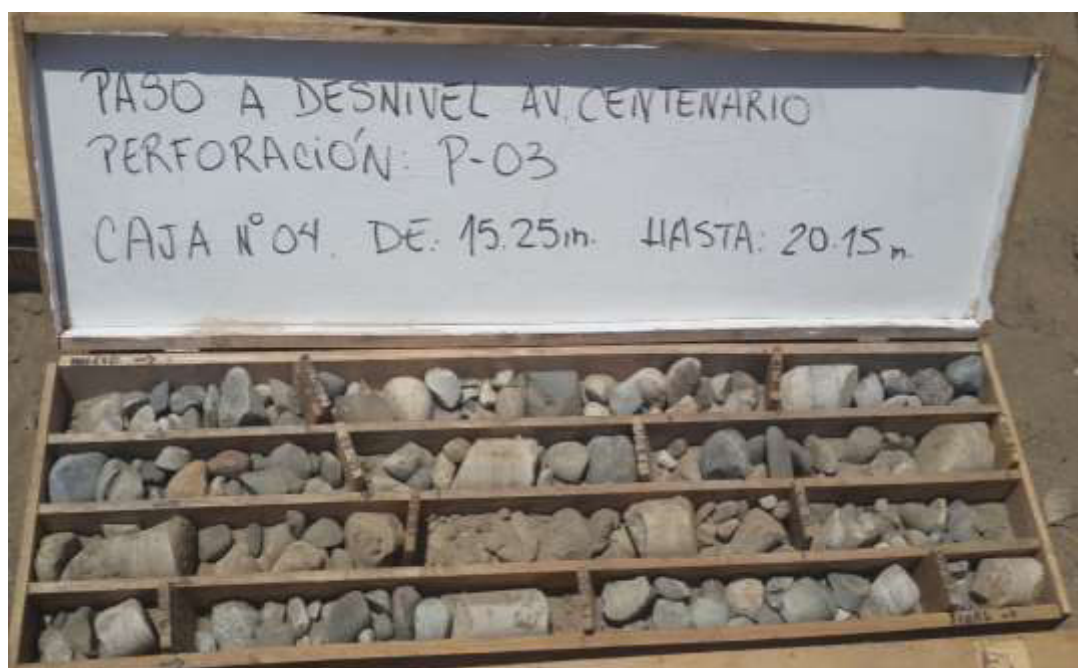 PASO A DESNIVEL AV. CENTENARIO
PERFORACIÓN: P-03
CAJA N° 04. DE: 15.25m. HASTA: 20.15m.